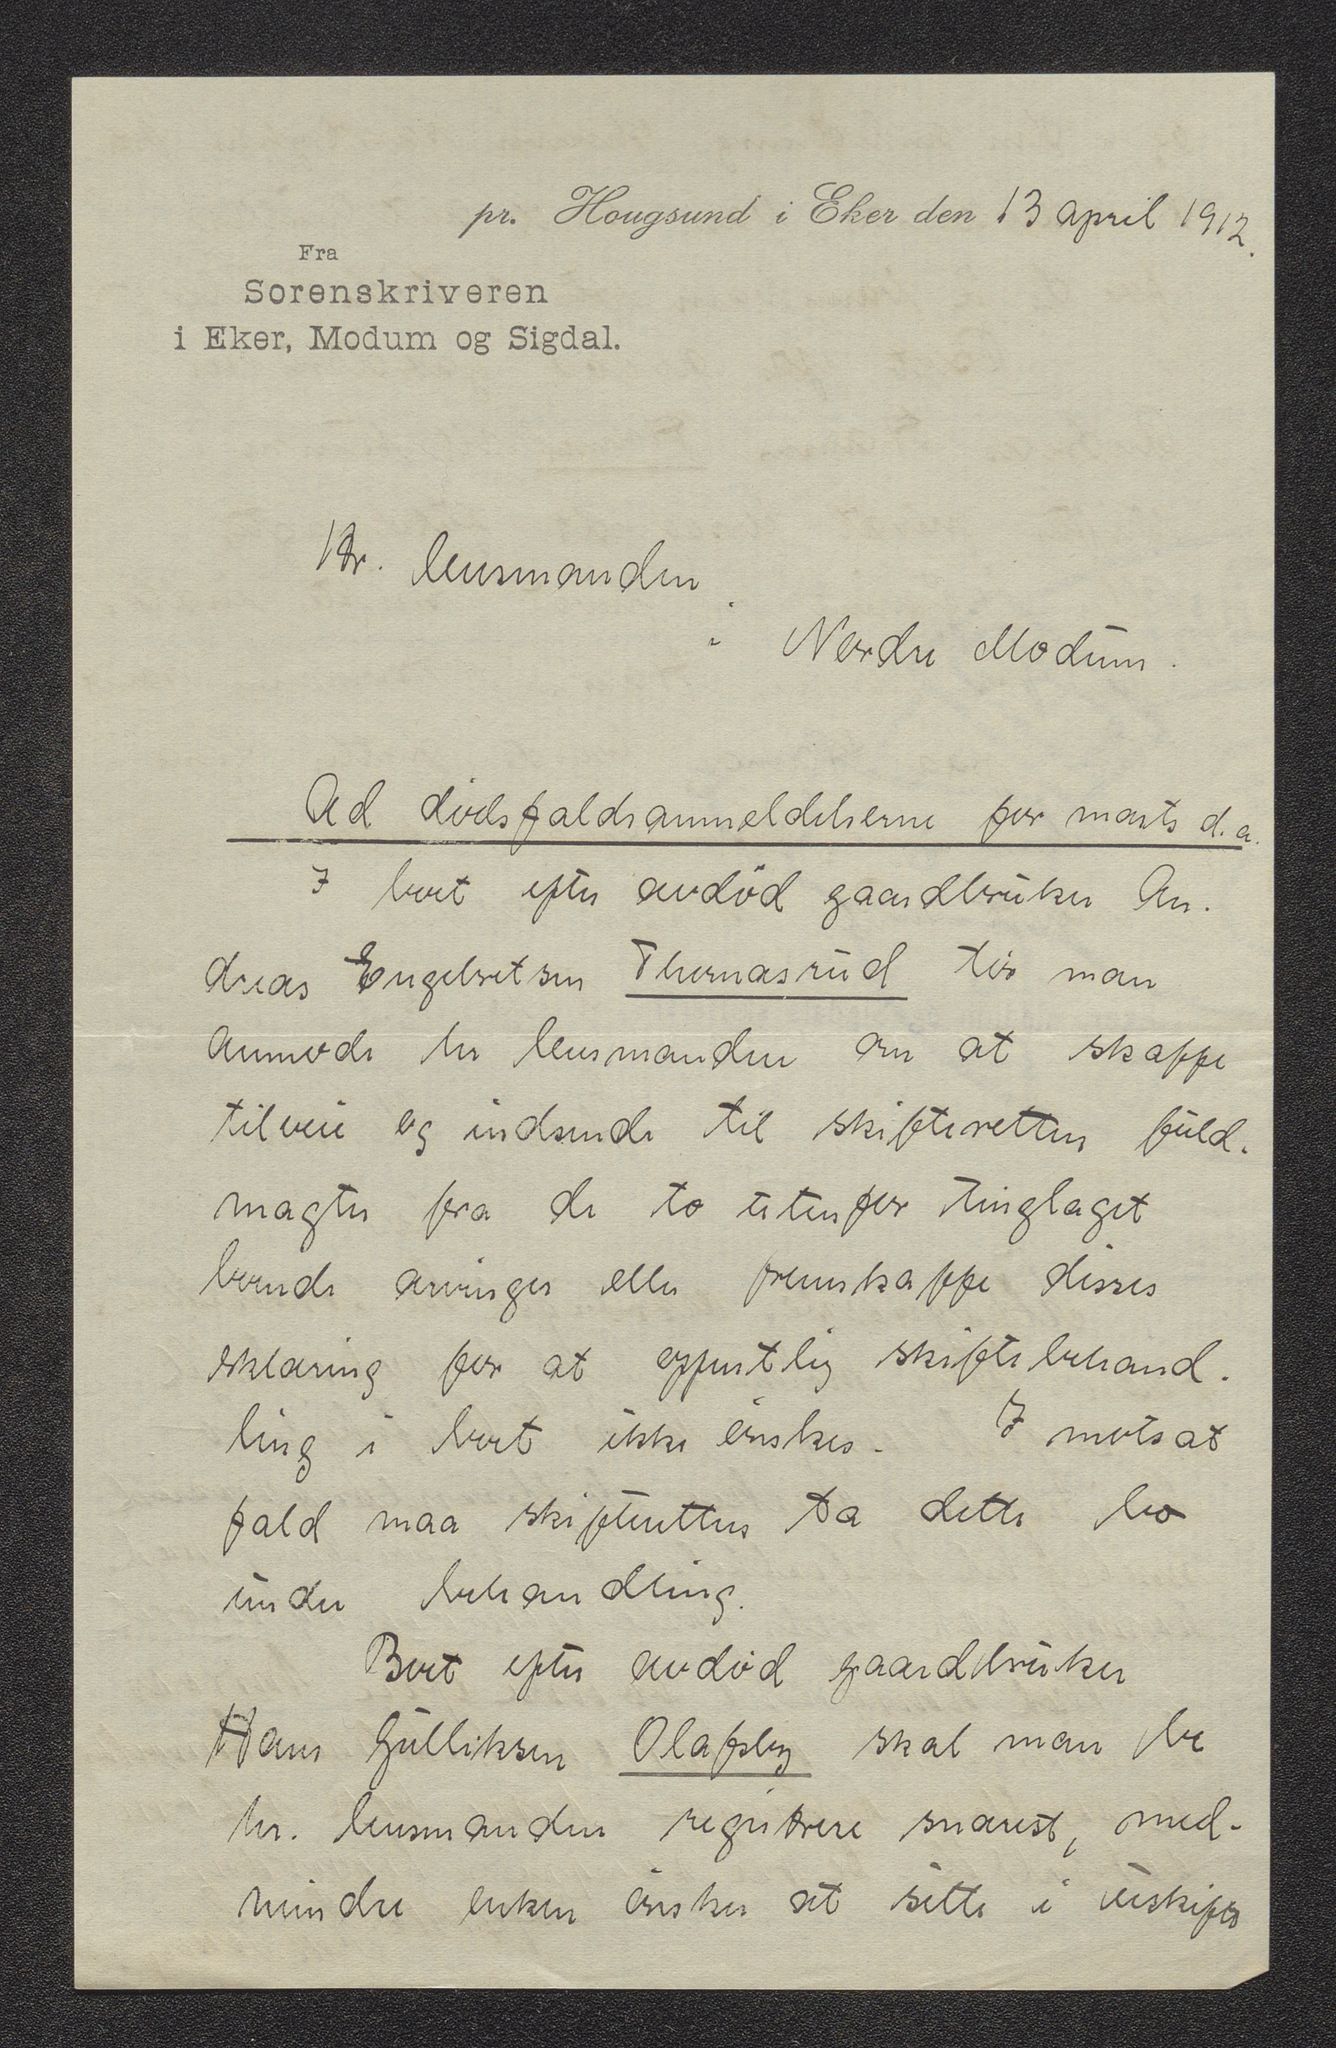 pr. Hougsund i Eker den 13 april 1912.
Fra
Sorenskriveren
i Eker, Modum og Sigdal.
Hr. lensmanden
i Nordre Modum.
Ad dødsfaldsanmeldelserne for marts d. a.
I boet efter avdød gaardbruker An-
dreas Engebretsen Thomasrud tør man
anmode hr lensmanden om at skaffe
tilveie og indsende til skifteretten fuld-
magter fra de to utenfor tinglaget
boende arvinger eller fremskaffe disses
erklæring for at offentlig skiftebehand-
ling i boet ikke ønskes. I motsat
fald maa skifteretten ta dette bo
under behandling.
Boet efter avdød gaardbruker
Hans Gulliksen Olafsby skal man be
hr. lensmanden registrere snarest, med-
mindre enken ønsker at sitte i uskifte